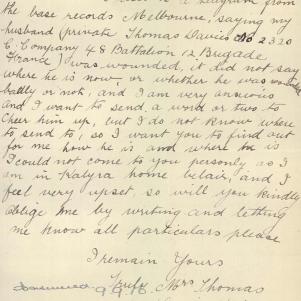 the base records Melbourne, saying my
husband (private Thomas Davies No 2320
C. Company 48 Battalion 12 Brigade
France) was wounded, it did not say
where he is now, or whether he was wounded
badly or not, and I am very anxious
and I want to send a word or two to
Cheer him up, but I do not know where
to send to, so I want you to find out
for me how he is and where he is
I could not come to you personly as I
am in Kalyra home belair, and I
feel very upset, so will you kindly
oblige me by writing and letting
me know all particulars please
I remain Yours
Truly Mrs Thomas
9.9.16